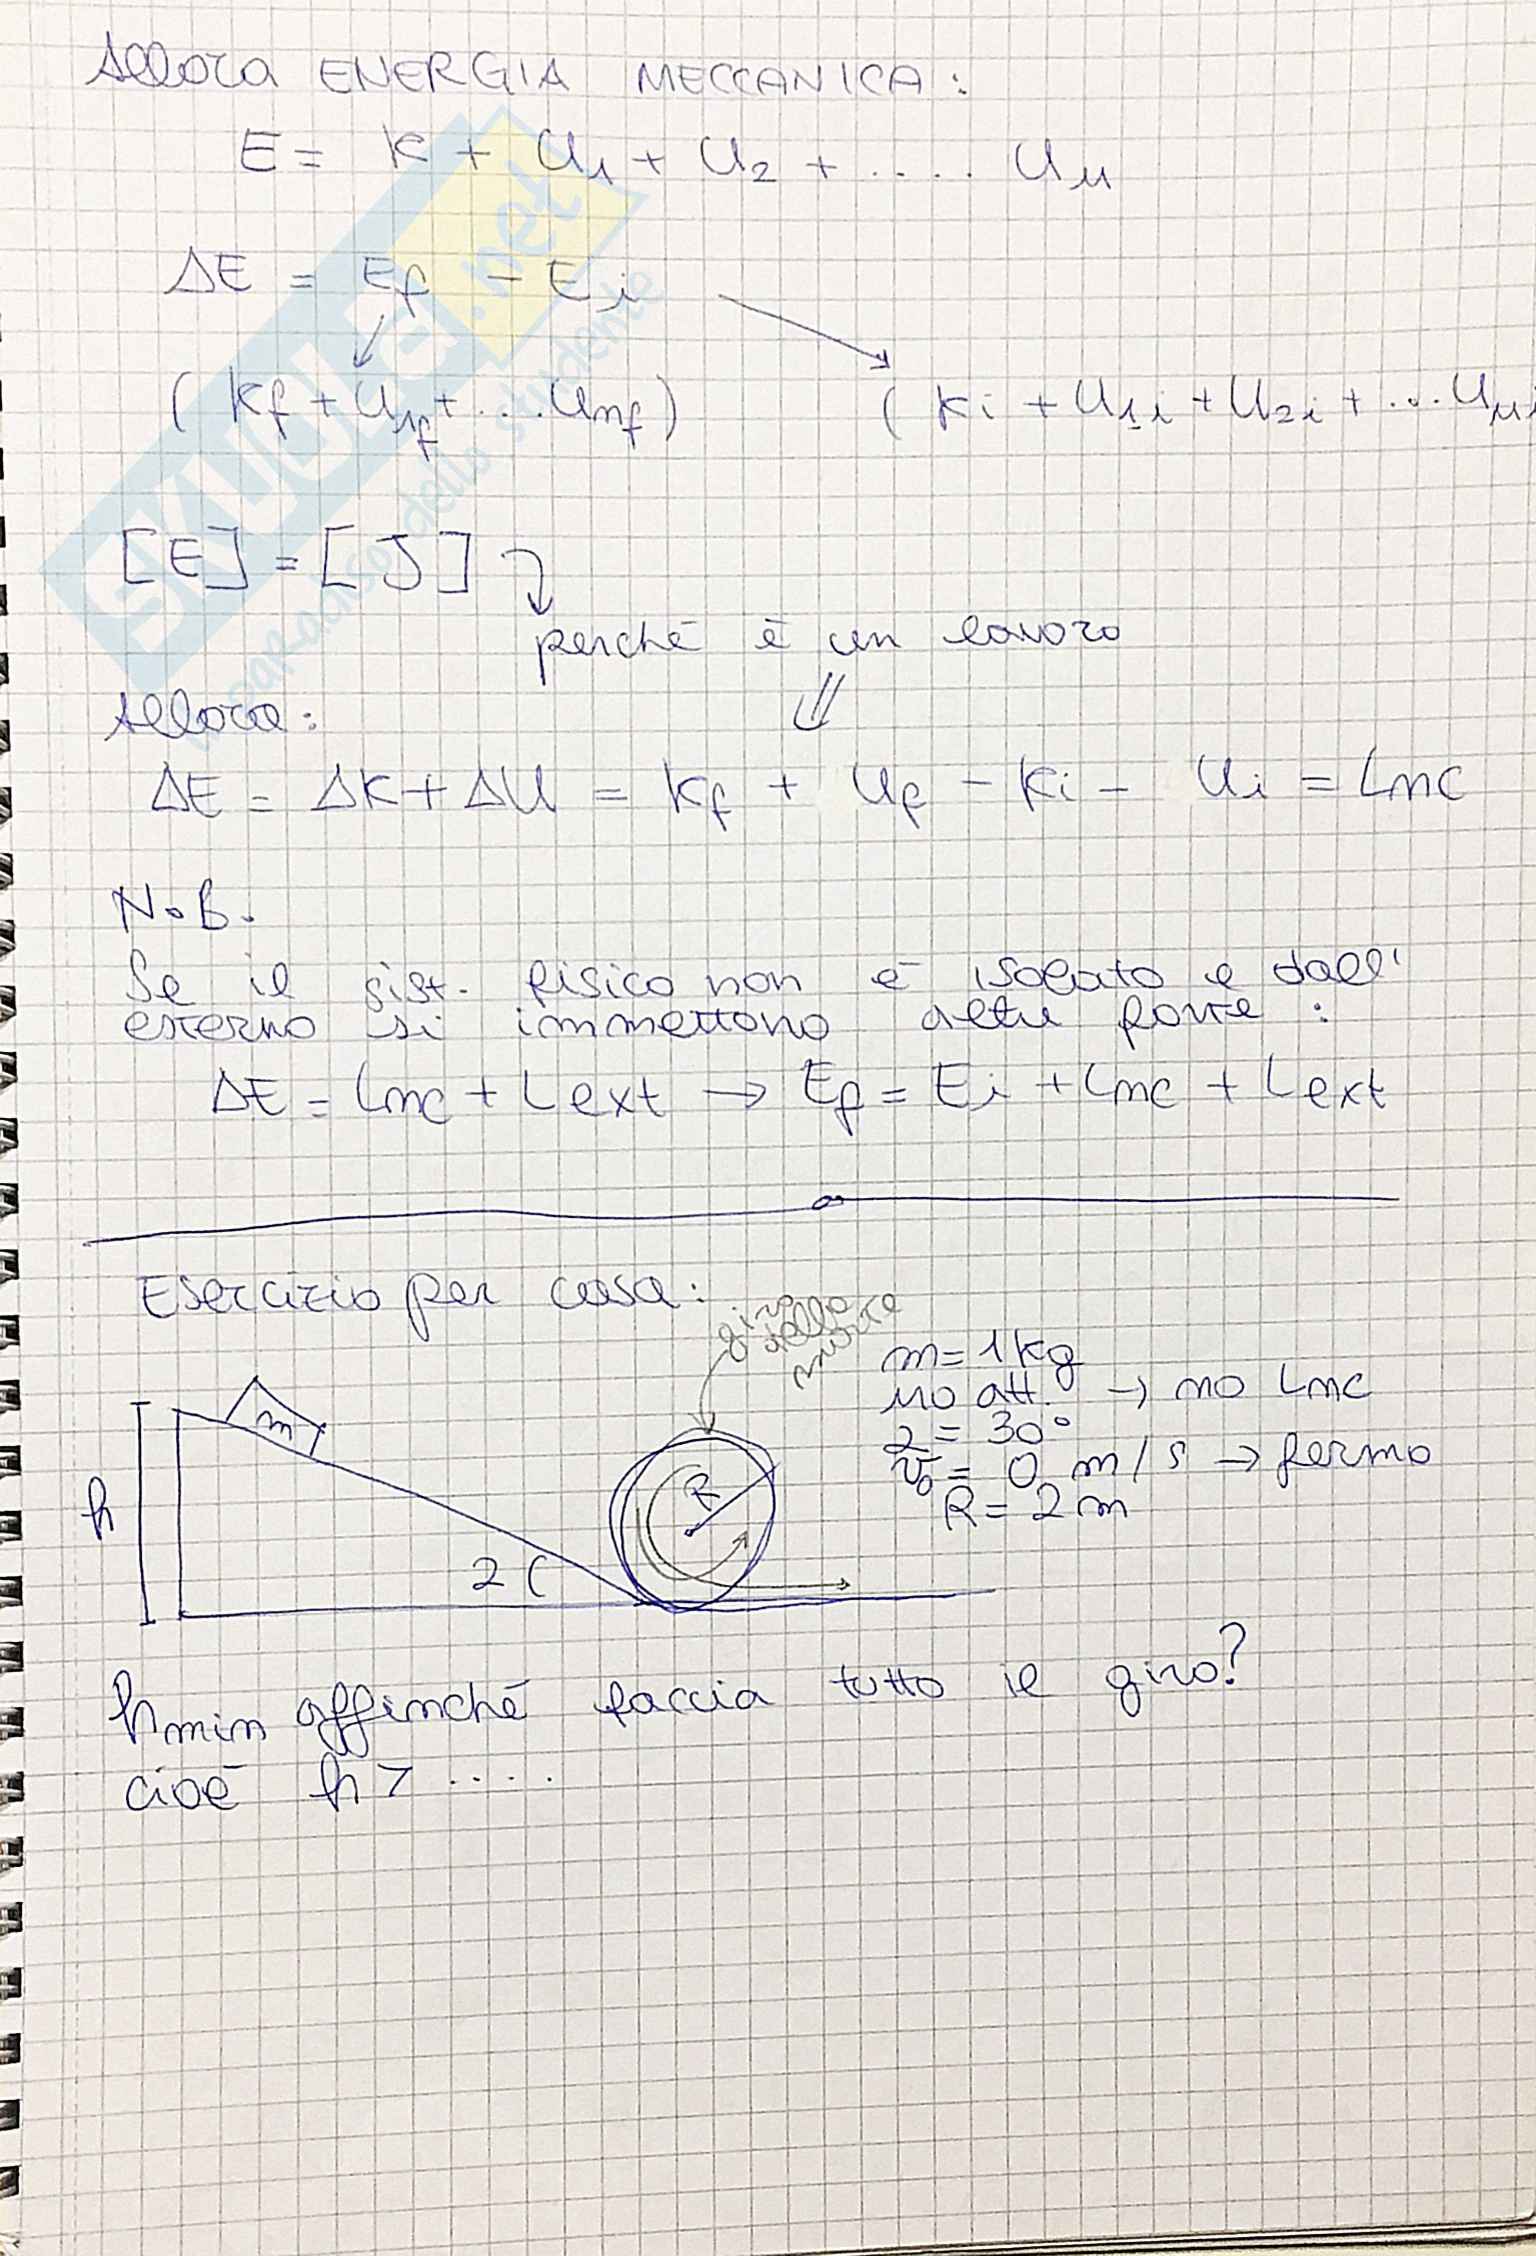 Allora ENERGIA MECCANICA:
E = K + U1 + U2 + .... Un
ΔE = Ef - Ei
(Kf + U1f + ... Unf) (Ki + U1i + U2i + ... Uni
[E] = [J]
perché è un lavoro
Allora:
ΔE = ΔK + ΔU = Kf + Uf - Ki - Ui = Lnc
N.B.
Se il sist. fisico non è isolato e dall'
esterno si immettono altre forze:
ΔE = Lnc + Lext → Ef = Ei + Lnc + Lext
Esercizio per casa:
giro
della
morte
m = 1 kg
no att. → no Lnc
α = 30°
v0 = 0 m/s → fermo
R = 2 m
m
h
R
α
hmin affinché faccia tutto il giro?
cioè h > .....
SKUOLA.net
www.paradiso dello studente